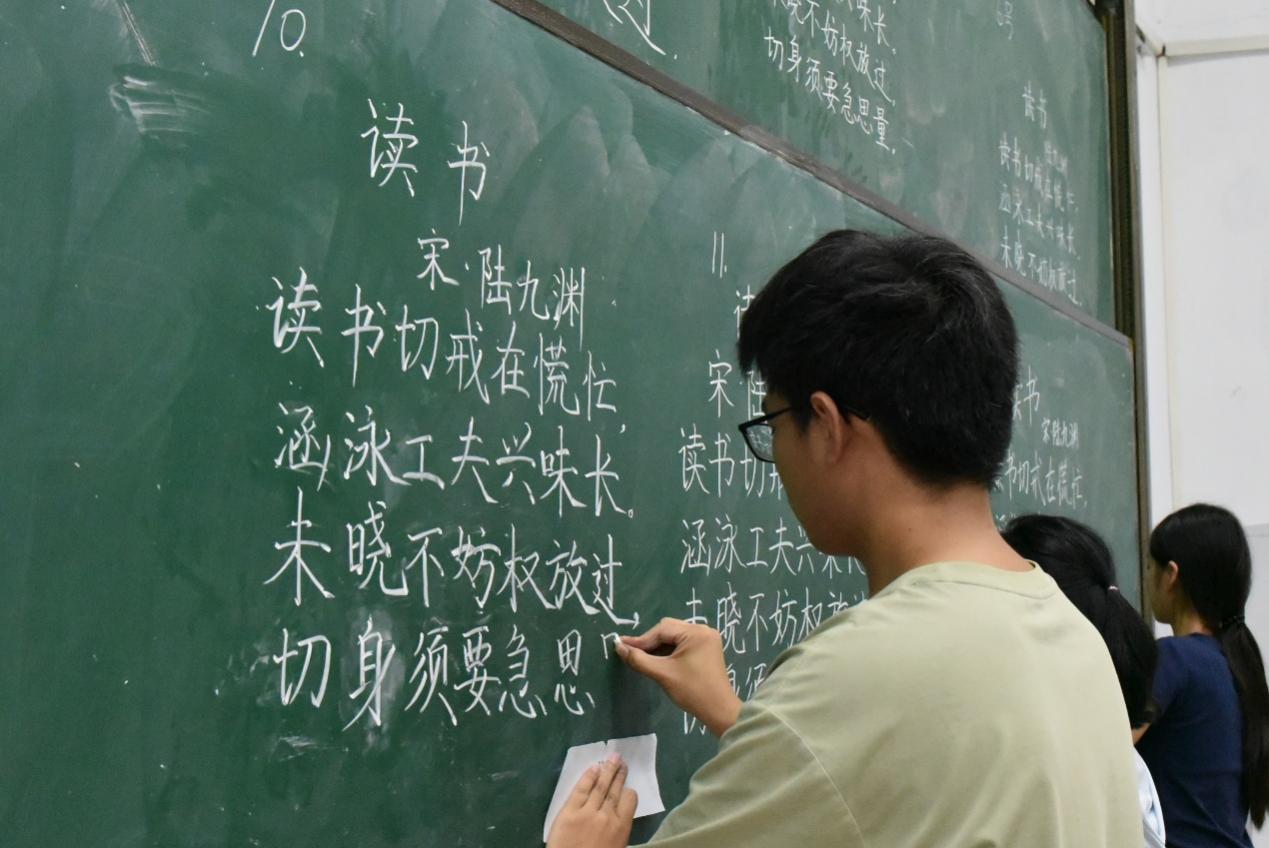 10.
读书
宋·陆九渊
读书切戒在慌忙,
涵泳工夫兴味长。
未晓不妨权放过,
切身须要急思
11.
宋·陆
读书切
涵泳工夫兴味
未晓不妨权放
书
宋·陆九渊
书切戒在慌忙,
过.
味长.
晓不妨权放过.
切身须要急思量.
读书
陆九渊
读书切戒在慌忙
涵泳工夫兴味长
未晓不妨权放过